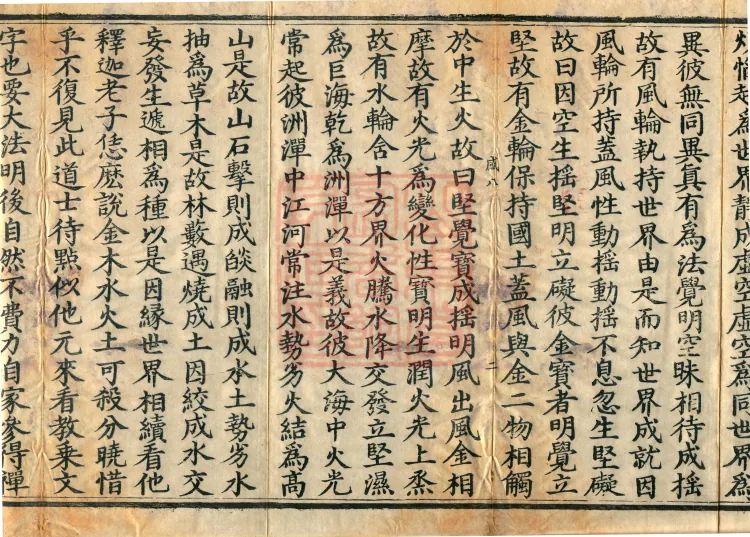 煩惱起爲世界靜成虛空虛空爲同世界爲
異彼無同異眞有爲法覺明空昧相待成搖
故有風輪執持世界由是而知世界成就因
風輪所持蓋風性動搖動搖不息忽生堅礙
故曰因空生搖堅明立礙彼金寶者明覺立
堅故有金輪保持國土蓋風與金二物相觸
咸八 二
於中生火故曰堅覺寶成搖明風出風金相
摩故有火光爲變化性寶明生潤火光上烝
故有水輪含十方界火騰水降交發立堅濕
爲巨海乾爲洲潬以是義故彼大海中火光
常起彼洲潬中江河常注水勢劣火結爲高
山是故山石擊則成燄融則成水土勢劣水
抽爲草木是故林藪遇燒成土因絞成水交
妄發生遞相爲種以是因緣世界相續看他
釋迦老子恁麽說金木水火土可殺分曉惜
乎不復見此道士待點似他元來看教乘文
字也要大法明後自然不費力自家參得禪